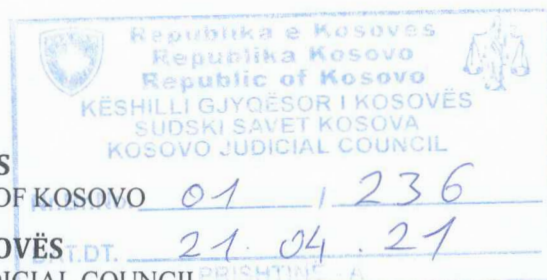 Republika e Kosovës
Republika Kosovo
Republic of Kosovo
KËSHILLI GJYQËSOR I KOSOVËS
SUDSKI SAVET KOSOVA
KOSOVO JUDICIAL COUNCIL
S
OF KOSOVO 01 / 236
OVËS DAT.DT. 21.04.21
DICIAL COUNCIL PRISHTINË - A